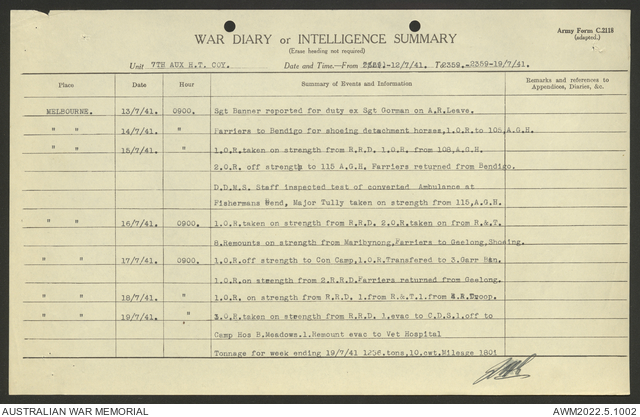 WAR DIARY or INTELLIGENCE SUMMARY
(Erase heading not required)
Army Form C.2118
(adapted.)
Unit 7TH AUX H.T. COY. Date and Time—From -12/7/41. To 2359-19/7/41.
Place Hour Summary of Events and Information Remarks and references to Appendices, Diaries, &c.
MELBOURNE. 13/7/41. 0900. Sgt Banner reported for duty ex Sgt Gorman on A.R.Leave.
" " 14/7/41. " Farriers to Bendigo for shoeing detachment horses,1.O.R.to 105,A.G.H.
" " 15/7/41. " 1.O.R.taken on strength from R.R.D. 1.O.R. from 108,A.G.H.
2.O.R. off strength to 115 A.G.H. Farriers returned from Bendigo.
D.D.M.S. Staff inspected test of converted Ambulance at
Fishermans Bend, Major Tully taken on strength from 115,A.G.H.
" " 16/7/41. 0900. 1.O.R.taken on strength from R.R.D. 2.O.R.taken on from R.&T.
8.Remounts on strength from Maribynong,Farriers to Geelong,Shoeing.
" " 17/7/41. 0900. 1.O.R.off strength to Con Camp,1.O.R.Transfered to 3.Garr Bn.
1.O.R.on strength from 2.R.R.D.Farriers returned from Geelong.
" " 18/7/41. " 1.O.R. on strength from R.R.D. 1.from R.&T.1.from
" " 19/7/41. " 3.O.R.taken on strength from R.R.D. 1.evac to C.D.S.1.off to
" Camp Hos B.Meadows.1.Remount evac to Vet Hospital
Tonnage for week ending 19/7/41 1256.tons,10.cwt.Mileage 1801
AUSTRALIAN WAR MEMORIAL AWM2022.5.1002